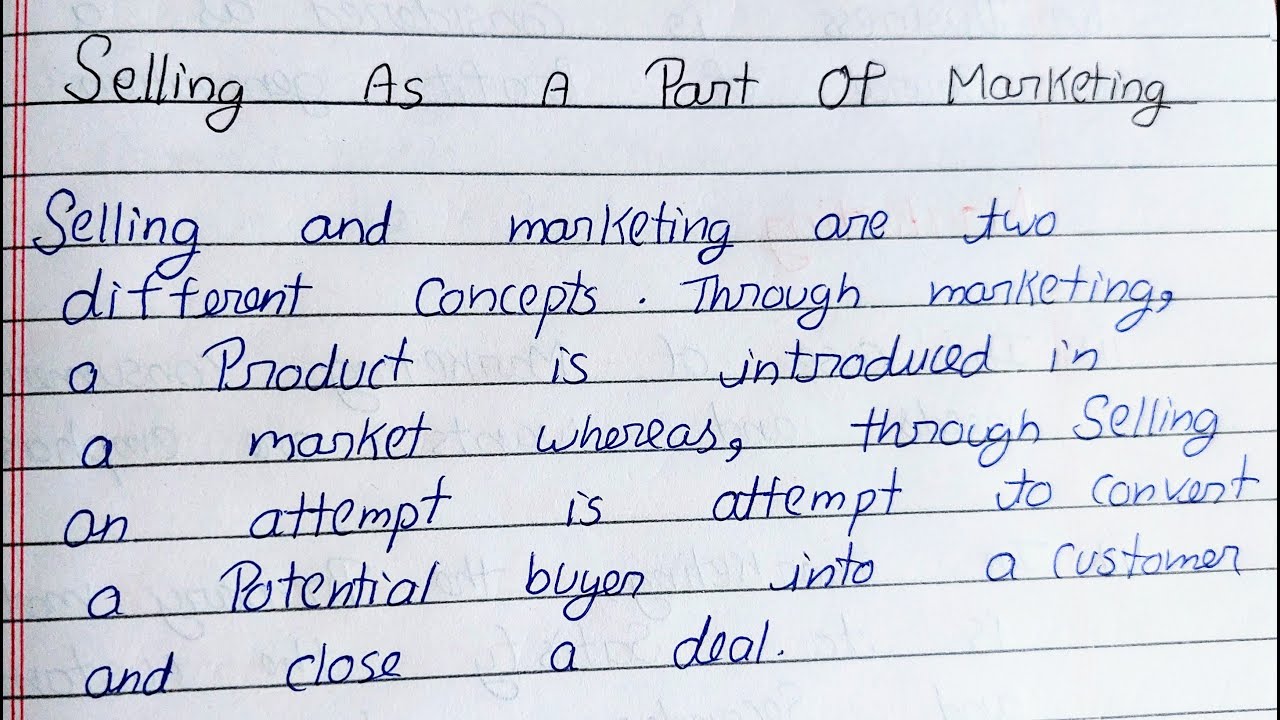 Selling As A Part Of Marketing
Selling and marketing are two
different concepts. Through marketing,
a Product is introduced in
a market whereas, through Selling
an attempt is attempt to convert
a Potential buyer into a customer
and close a deal.